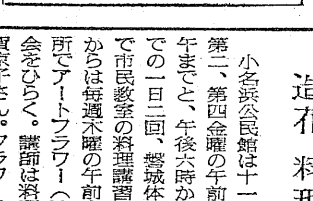 造花 料理
小名浜公民館は十一
第二、第四金曜の午前
午までと、午後六時か
での一日二回、磐城体
で市民教室の料理講習
からは毎週木曜の午前
所でアートフラワー（
会をひらく。講師は料
賀京子さん。フラワ